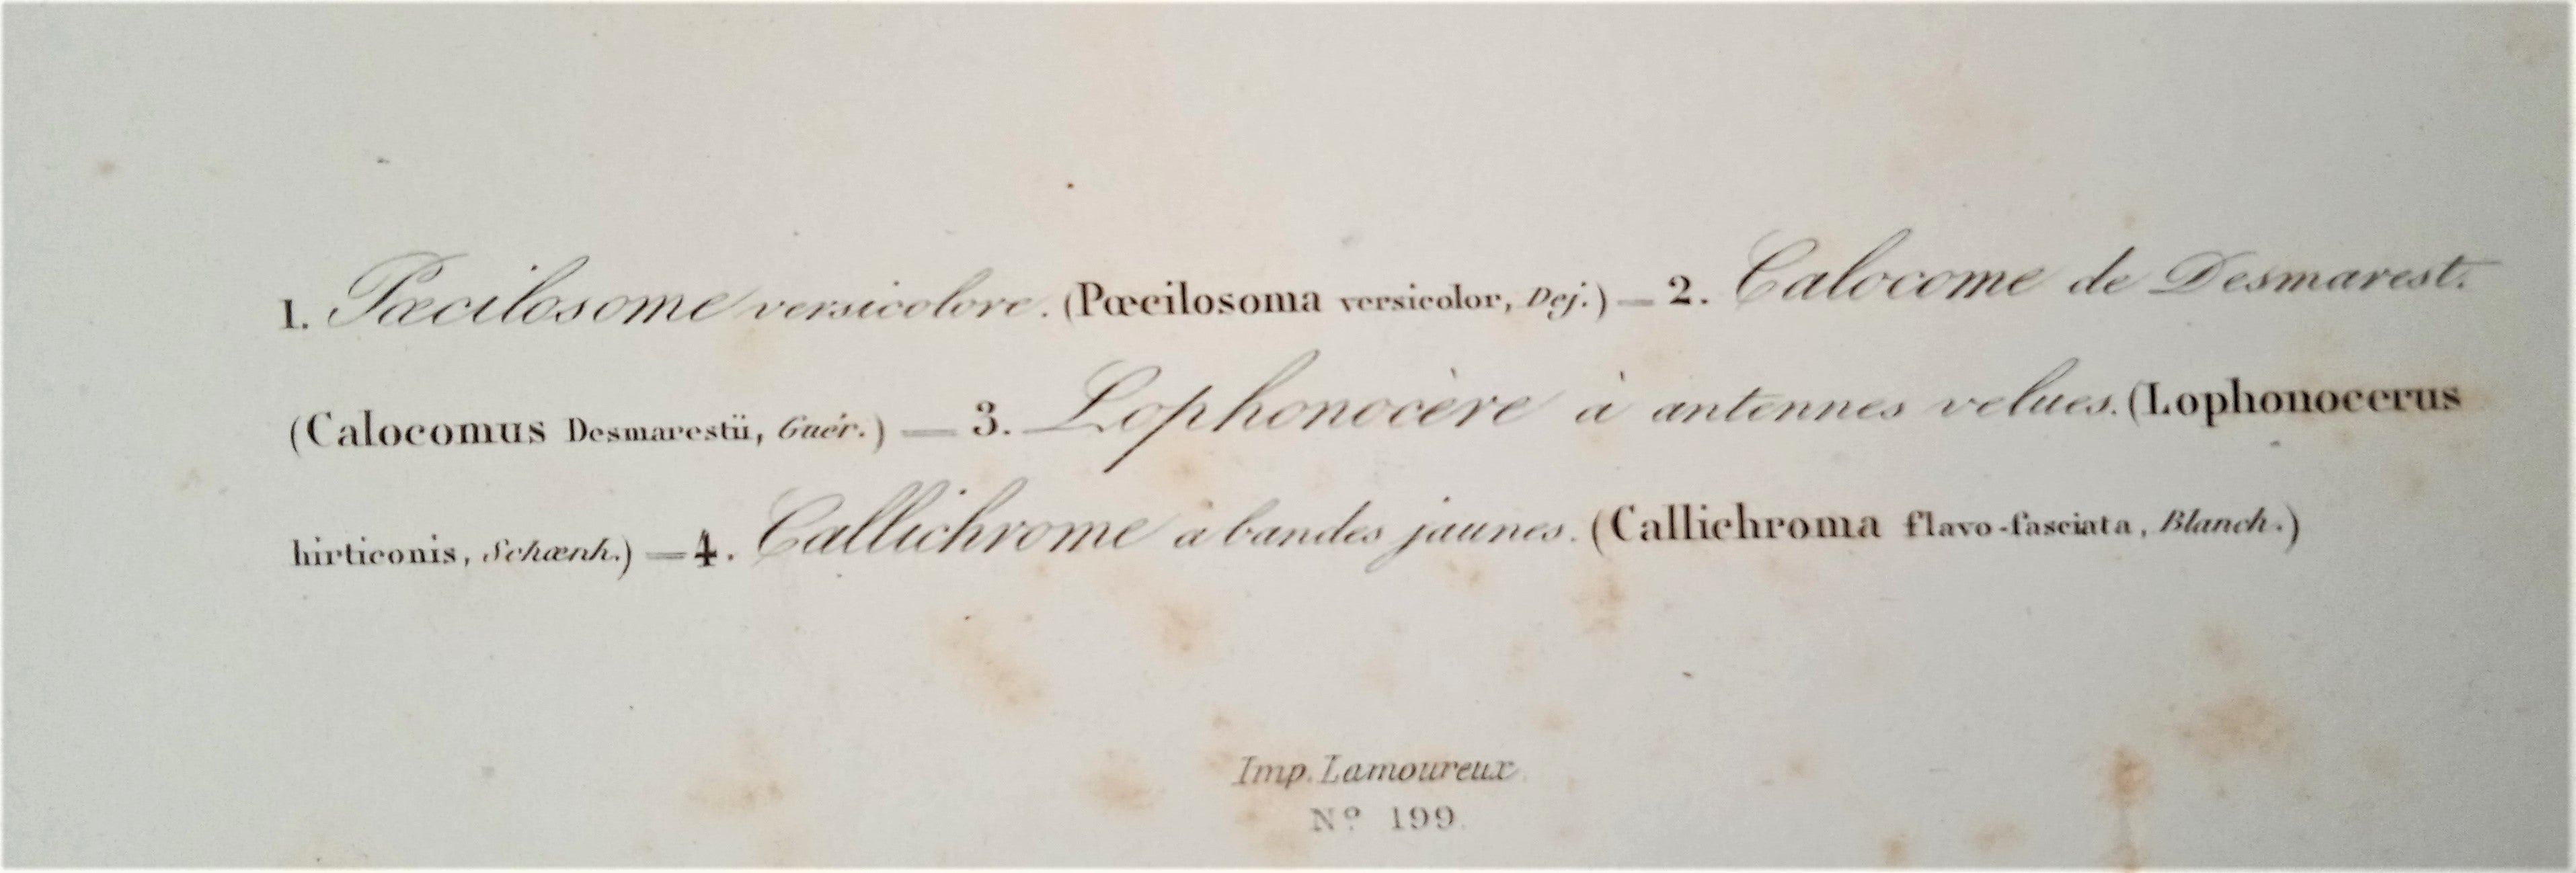 1. Pœcilosome versicolore. (Pœcilosoma versicolor, Dej.) — 2. Calocome de Desmarest.
(Calocomus Desmarestii, Guér.) — 3. Lophonocère à antennes velues. (Lophonocerus
hirticonis, Schœnh.) — 4. Callichrome à bandes jaunes. (Callichroma flavo-fasciata, Blanch.)
Imp. Lamoureux.
Nº 199.